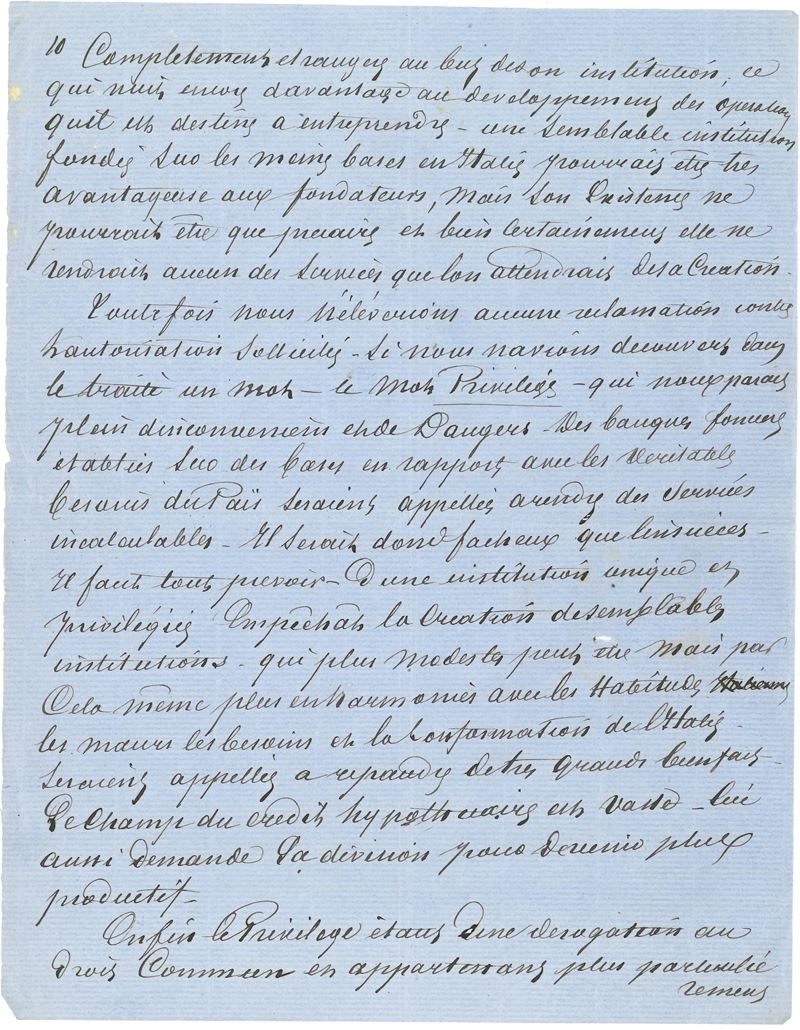 10 Completement etrangers au but de son institution, ce
qui nuit encore davantage au developpement des operations
quil est destiné a entreprendre - une semblable institution
fondée sur les meme bases en Italie pourrait etre tres
avantageuse aux fondateurs, mais son Existence ne
pourrait etre que precaire et bien Certainement elle ne
rendrait aucun des Services que lon attendrait de sa Creation.
Toutefois nous n'éléverions aucune reclamation contre
lautorisation Sollicitée - Si nous navions decouvert dans
le traité un mot - le mot Privilége - qui nous parait
plein dinconvenients et de Dangers. Des banques foncieres
etablies Sur des bases en rapport avec les veritables
besoins du Païs seraient appellées a rendre des Services
incalculables - Il Serait donc facheux que linsuccès -
Il faut tout prevoir - D'une institution unique et
privilégiée Empêchat la Creation de semblables
institutions - qui plus modestes peut etre mais par
Cela même plus en harmonie avec les Habitudes
les mœurs les besoins et la Conformation de l'Italie
Seraient appellées a repandre de tres grands bienfaits -
Le Champ du credit hypothecaire est vaste - lui
aussi demande la division pour devenir plus
productif -
Enfin le Privilege etant une derogation au
Droit Commun et appartenant plus particulié
rement